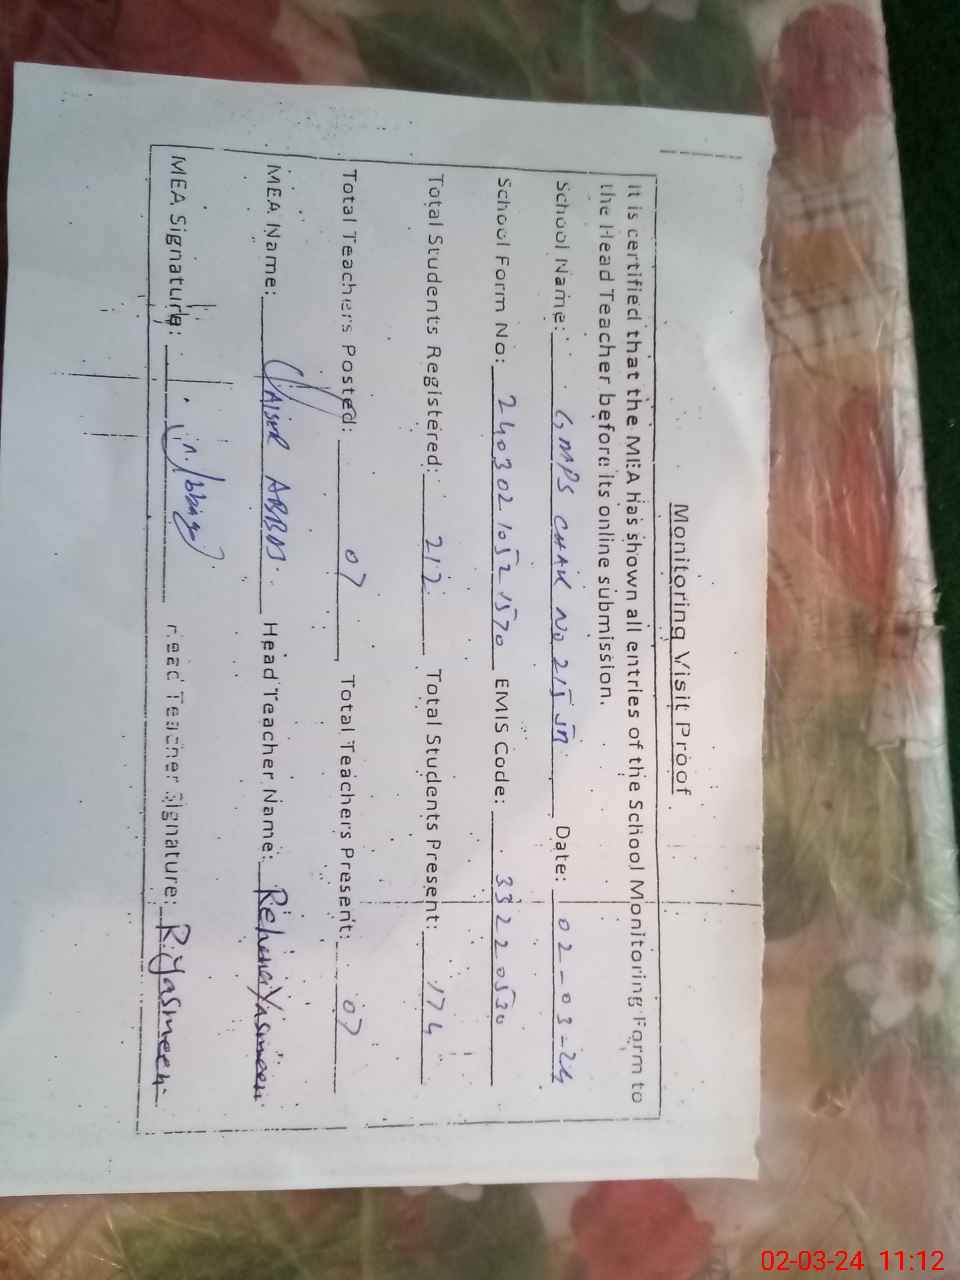 Monitoring Visit Proof
It is certified that the MEA has shown all entries of the School Monitoring Form to
the Head Teacher before its online submission.
School Name: GMPS CHAK No 215 Date: 02-03-24
School Form No: 24030210521570 EMIS Code: 33220530
Total Students Registered: 212 Total Students Present: 174
Total Teachers Posted: 07 Total Teachers Present: 07
MEA Name: QAISER ABBAS Head Teacher Name: Rehana Yasmeen
MEA Signature: Head Teacher Signature: R.Yasmeen
02-03-24 11:12